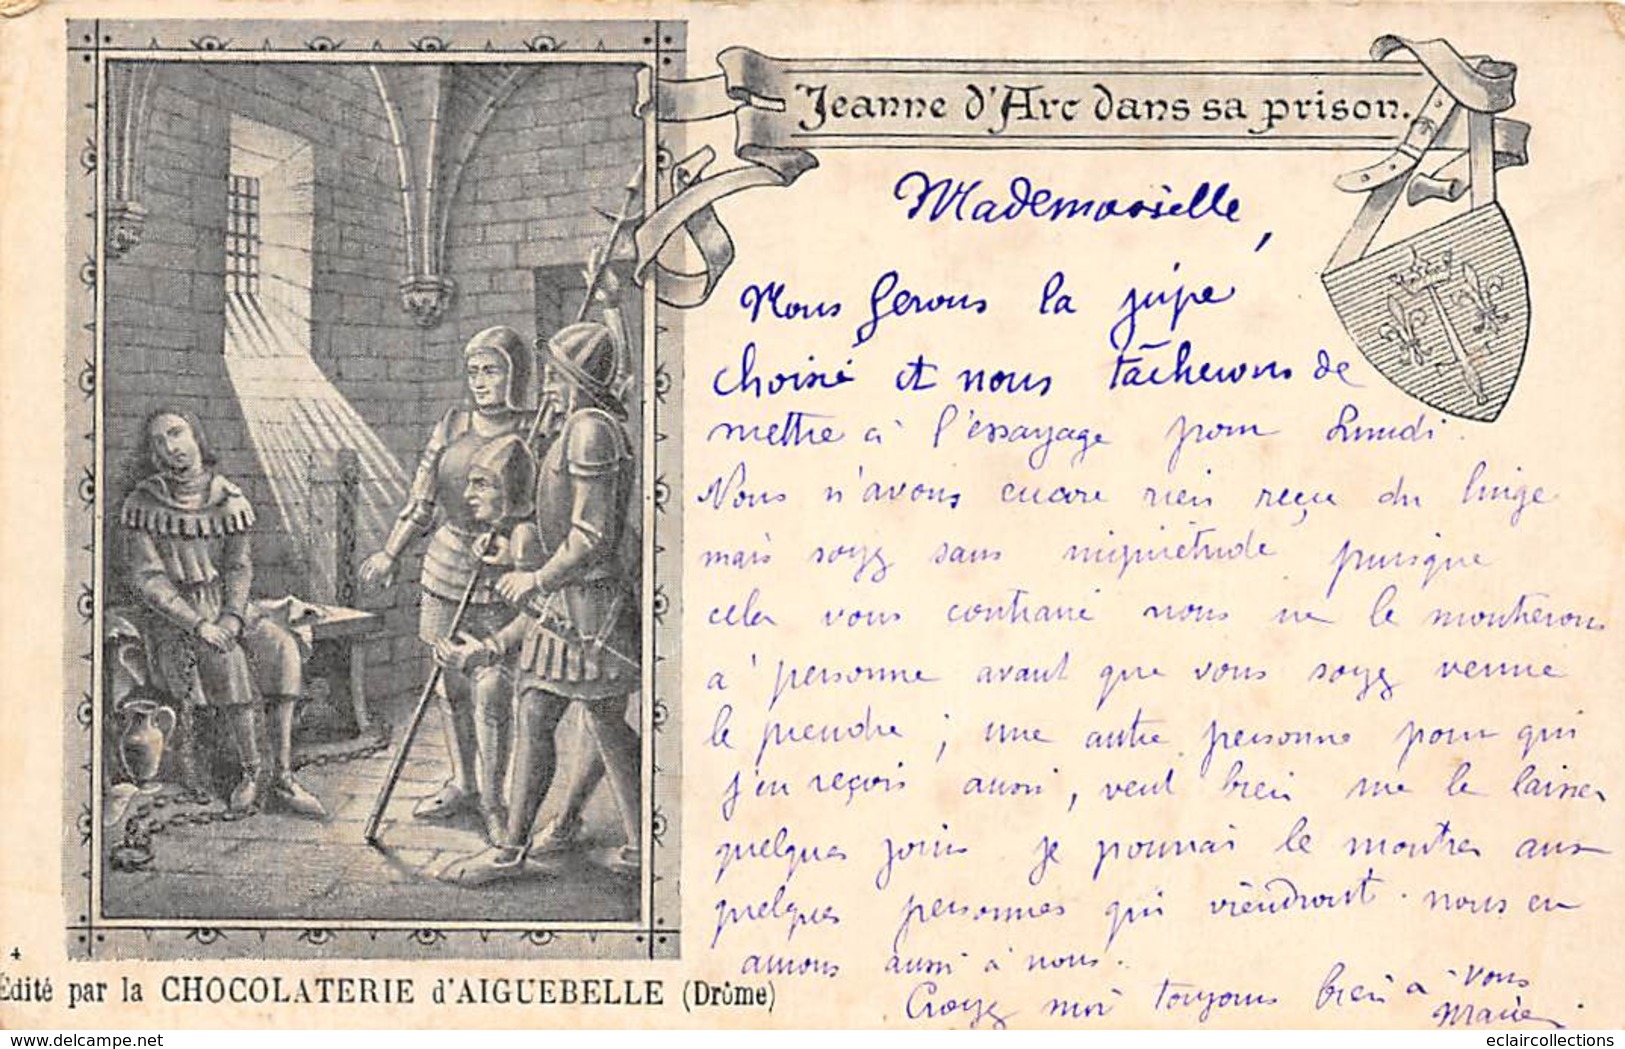 Jeanne d'Arc dans sa prison.
Mademoiselle,
Nous ferons la jupe
choisie et nous tâcherons de
mettre à l'essayage pour Lundi.
Nous n'avons encore rien reçu du linge
mais soyez sans inquiétude puisque
cela vous contrarie nous ne le montrerons
à personne avant que vous soyez venue
le prendre ; une autre personne pour qui
j'en reçois aussi, veut bien me le laisser
quelques jours je pourrai le montrer aux
quelques personnes qui viendront. nous en
aurons aussi à nous.
Croyez moi toujours bien à vous
Marie
4
Edité par la CHOCOLATERIE d'AIGUEBELLE (Drôme)
© delcampe.net
eclaircollections